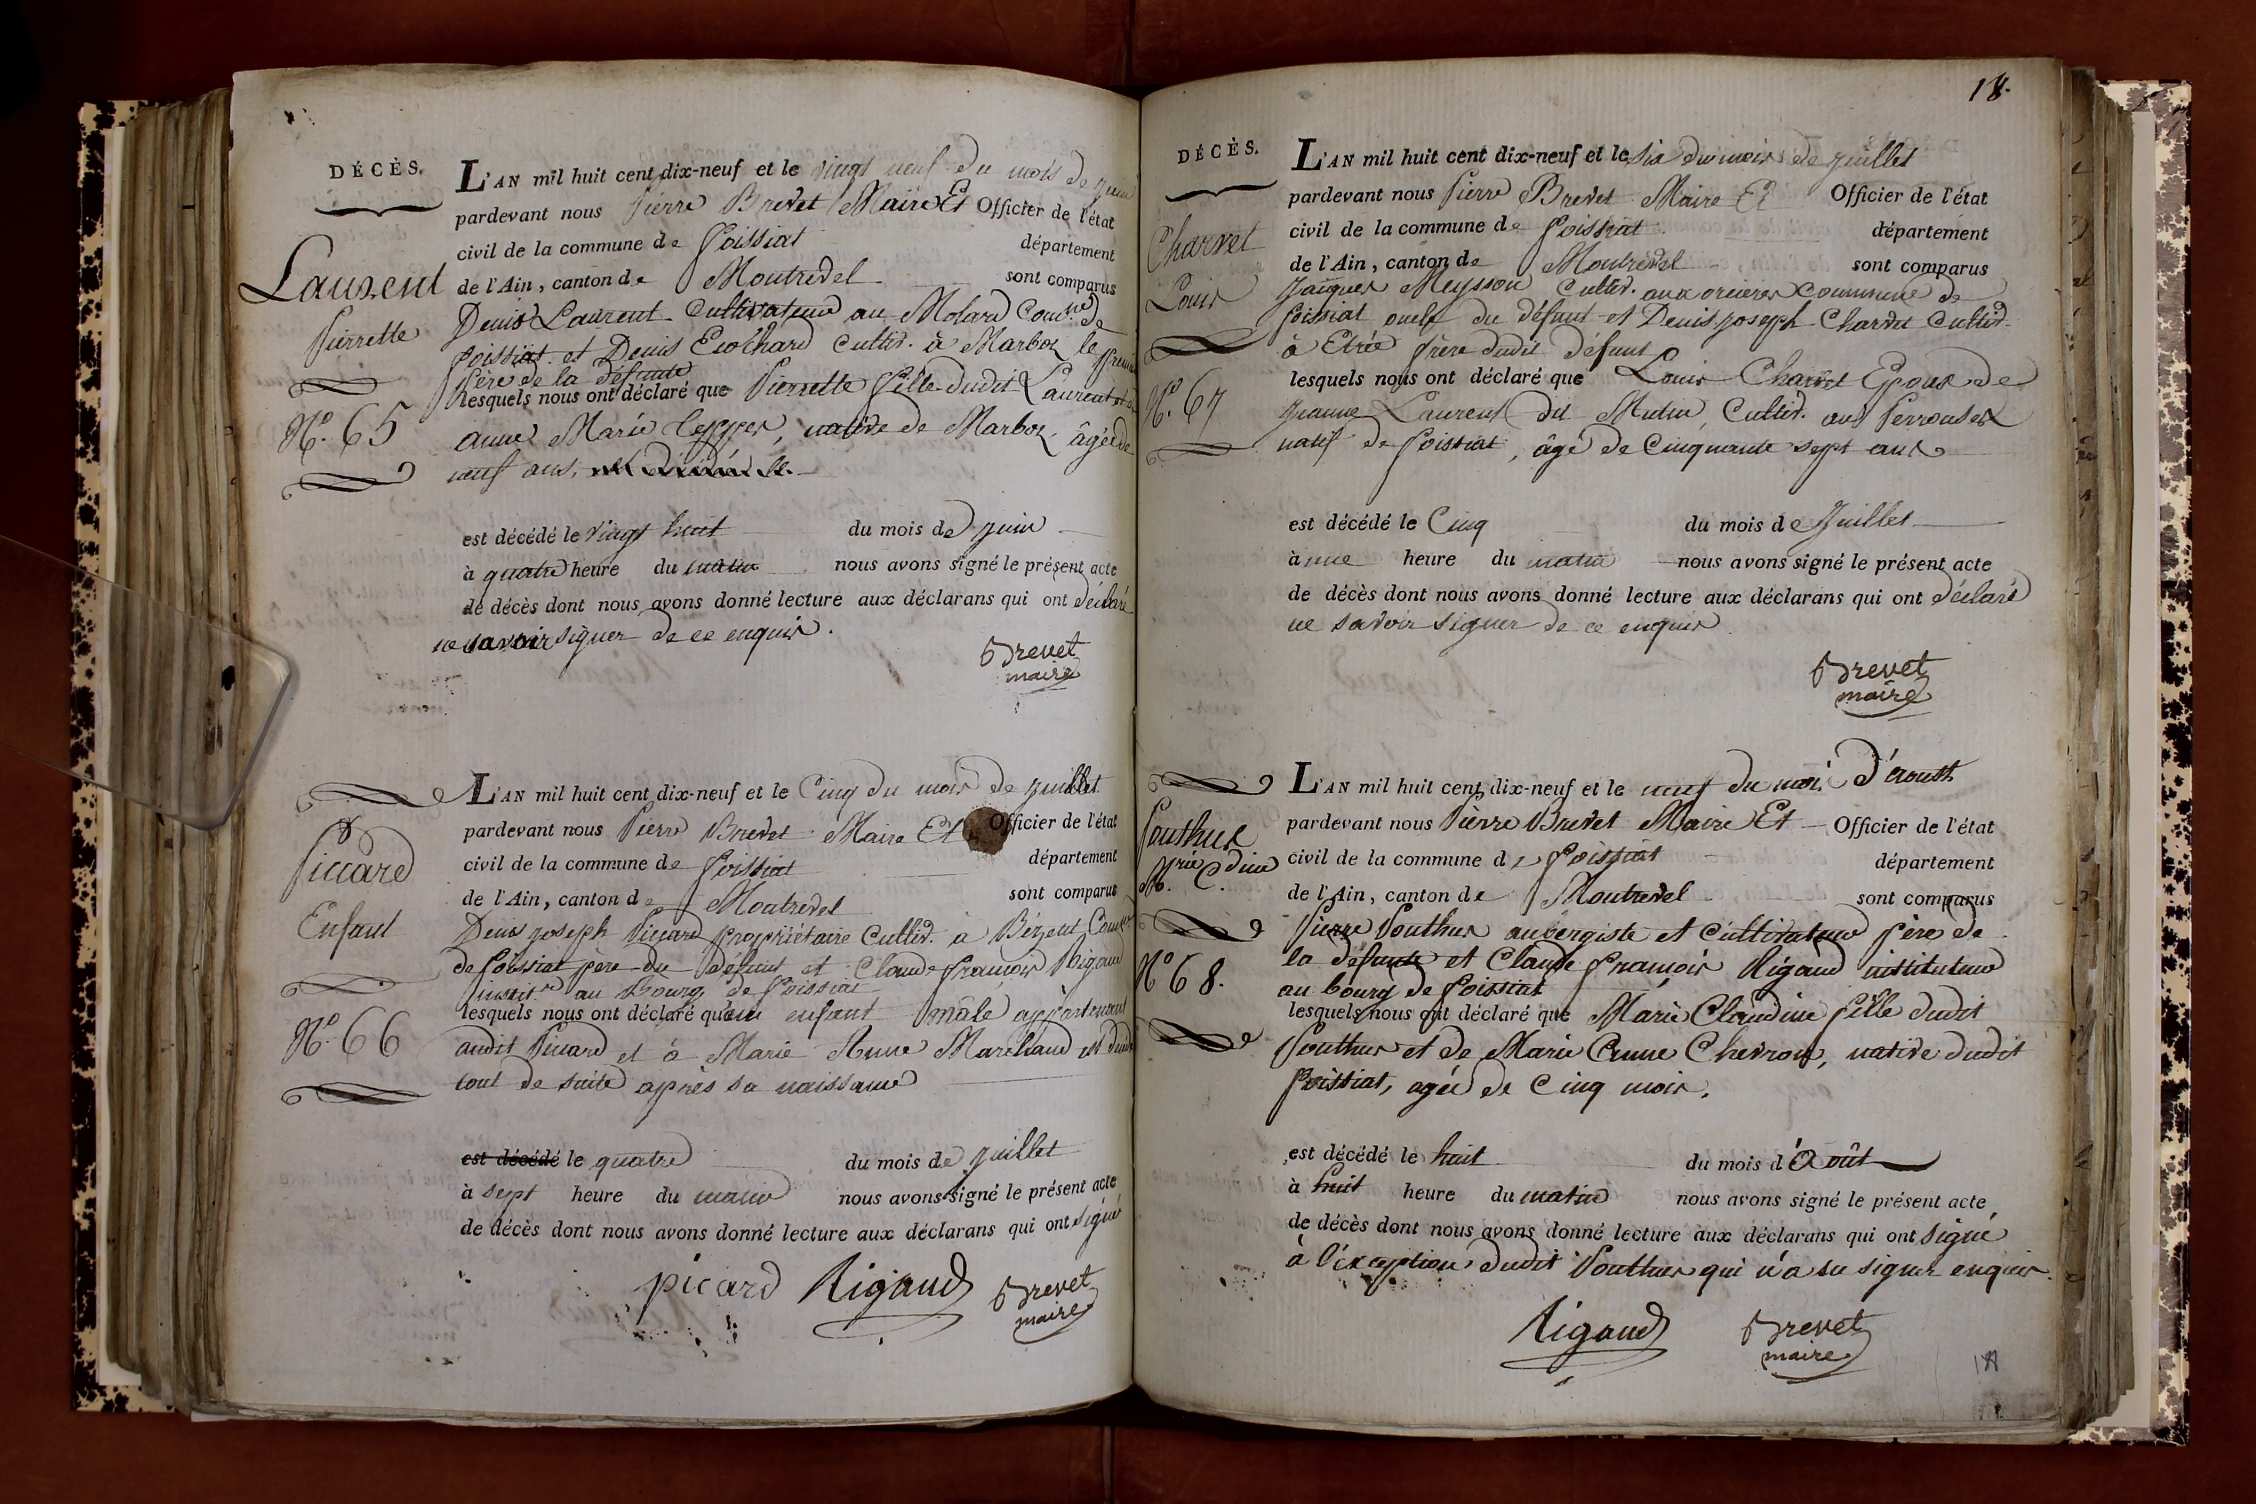 DÉCÈS.
Laurent
Pierrette
N.º 65
L'AN mil huit cent dix-neuf et le vingt neuf du mois de juin
pardevant nous Pierre Brevet Maire Et Officier de l'état
civil de la commune de Foissiat département
de l'Ain, canton de Montrevel sont comparus
Denis Laurent Cultivateur au Molard Com.ne de
foissiat et Denis Cultiv. à Marboz le premier
Père de la défunte
lesquels nous ont déclaré que Pierrette fille dudit Laurent et
anne Marie native de Marboz, âgée de
neuf ans,
est décédé le vingt huit du mois de juin
à quatre heure du matin nous avons signé le présent acte
de décès dont nous avons donné lecture aux déclarans qui ont déclaré
ne savoir signer de ce enquis.
Brevet
maire
Piccard
Enfant
N.º 66
L'AN mil huit cent dix-neuf et le Cinq du mois de juillet
pardevant nous Pierre Brevet Maire Et Officier de l'état
civil de la commune de Foissiat département
de l'Ain, canton de Montrevel sont comparus
Denis joseph Piccard propriétaire Cultiv. à Bézent
de foissiat pere du défunt et Claude françois Rigaud
instit.r au Bourg de foissiat
lesquels nous ont déclaré qu'un enfant mâle appartenant
audit Piccard et à Marie Anne Marchand
tout de suite après sa naissance
est décédé le quatre du mois de juillet
à sept heure du matin nous avons signé le présent acte
de décès dont nous avons donné lecture aux déclarans qui ont signé
picard Rigaud Brevet
maire
18.
DÉCÈS.
Charvet
Louis
N.º 67
L'AN mil huit cent dix-neuf et le six du mois de juillet
pardevant nous Pierre Brevet Maire Et Officier de l'état
civil de la commune de Foissiat département
de l'Ain, canton de Montrevel sont comparus
Jacques Meysson Cultiv. aux commune de
foissiat oncle du défunt et Denis joseph Charvet Cultiv.
à Etrée frère dudit défunt
lesquels nous ont déclaré que Louis Charvet Epoux de
Jeanne Laurent dit Mutin, Cultiv. aux Perrouses
natif de foissiat, âgé de Cinquante sept ans
est décédé le Cinq du mois de Juillet
à une heure du matin nous avons signé le présent acte
de décès dont nous avons donné lecture aux déclarans qui ont déclaré
ne savoir signer de ce enquis
Brevet
maire
Pouthus
M.rie C.dine
Nº 68.
L'AN mil huit cent dix-neuf et le neuf du mois d'aoust
pardevant nous Pierre Brevet Maire Et Officier de l'état
civil de la commune de Foissiat département
de l'Ain, canton de Montrevel sont comparus
Pierre Pouthus aubergiste et Cultivateur Père de
la défunte et Claude françois Rigaud instituteur
au bourg de foissiat
lesquels nous ont déclaré que Marie Claudine fille dudit
Pouthus et de Marie Anne Chevron, native dudit
foissiat, agée de Cinq mois.
est décédé le huit du mois d'Août
à huit heure du matin nous avons signé le présent acte
de décès dont nous avons donné lecture aux déclarans qui ont signé
à l'exception dudit Pouthus qui n'a su signer enquis.
Rigaud Brevet
maire